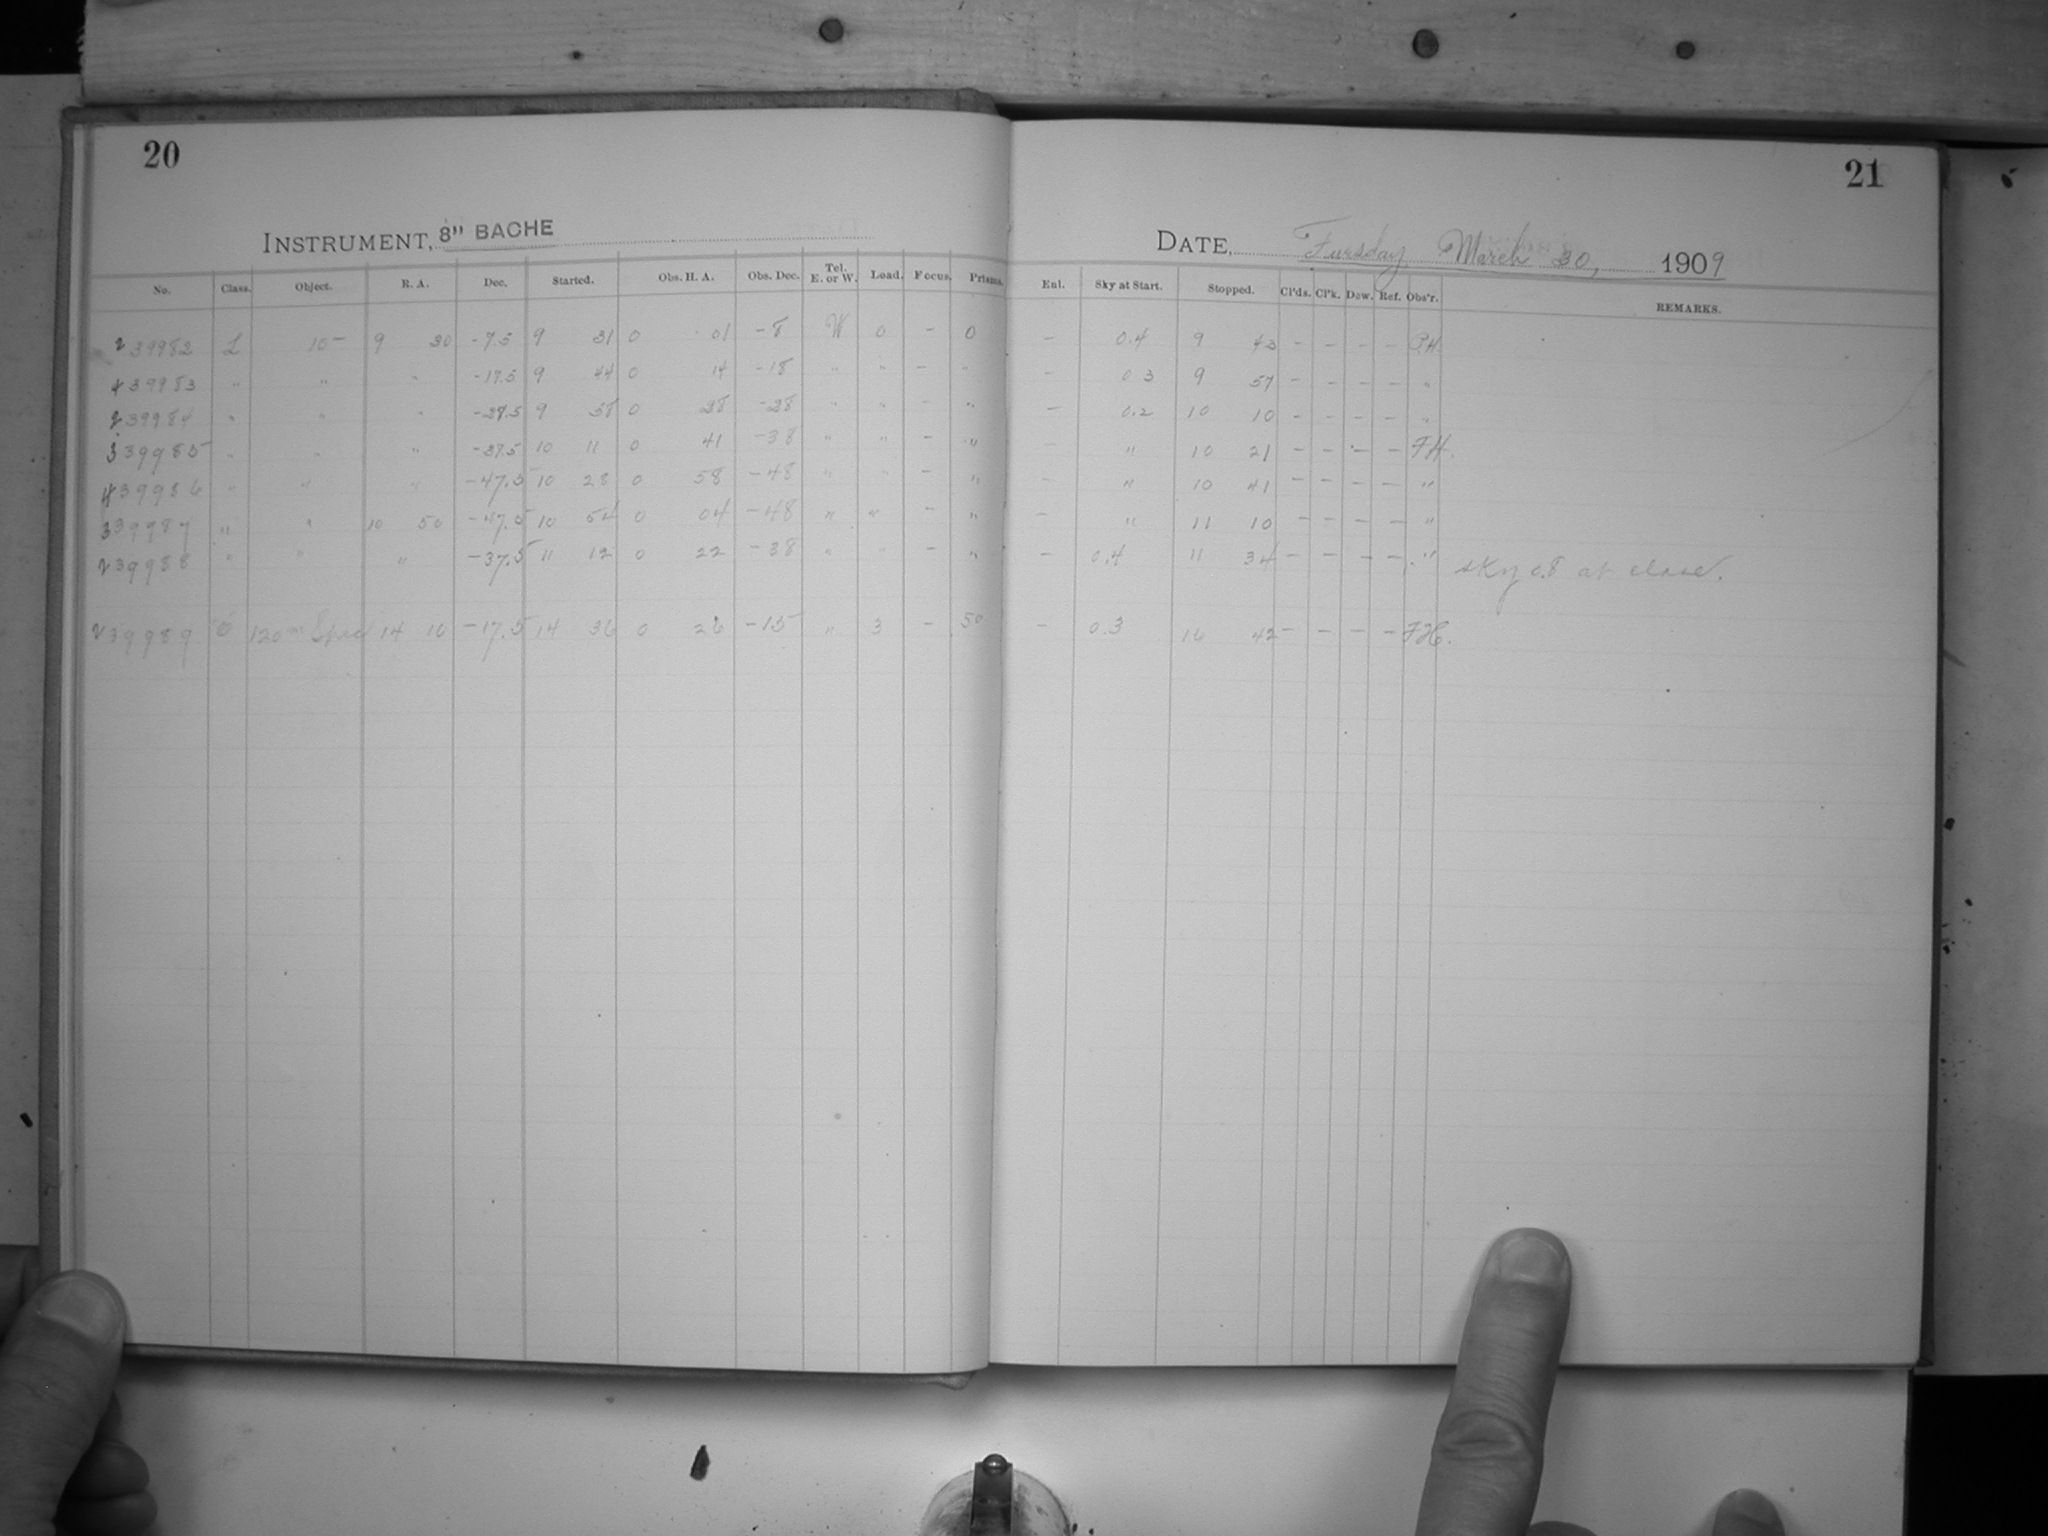 20
INSTRUMENT, 8" BACHE
No. Class. Object. R. A. Dec. Started. Obs. H. A. Obs. Dec. Tel. E. or W. Load. Focus. Prisms.
39982 L 10- 9 30 -7.5 9 31 0 01 -8 W 0 - 0
39983 " " " -17.5 9 44 0 14 -18 " " - "
39984 " " " -27.5 9 58 0 28 -28 " " - "
39985 " " " -37.5 10 11 0 41 -38 " " - "
39986 " " " -47.5 10 28 0 58 -48 " " - "
39987 " " 10 50 -47.5 10 54 0 04 -48 " " - "
39988 " " " -37.5 11 12 0 22 -38 " " - "
39989 120m Spec 14 10 -17.5 14 36 0 26 -15 " 3 - 50
21
DATE, Tuesday March 30, 1909
Enl. Sky at Start. Stopped. Cl'ds. Cl'k. Dew. Ref. Obs'r. REMARKS.
- 0.4 9 43 - - - -
- 0.3 9 57 - - - - "
- 0.2 10 10 - - - - "
- " 10 21 - - - - FH.
- " 10 41 - - - - "
- " 11 10 - - - - "
- 0.4 11 34 - - - - " sky 0.8 at close.
- 0.3 16 42 - - - - FH.